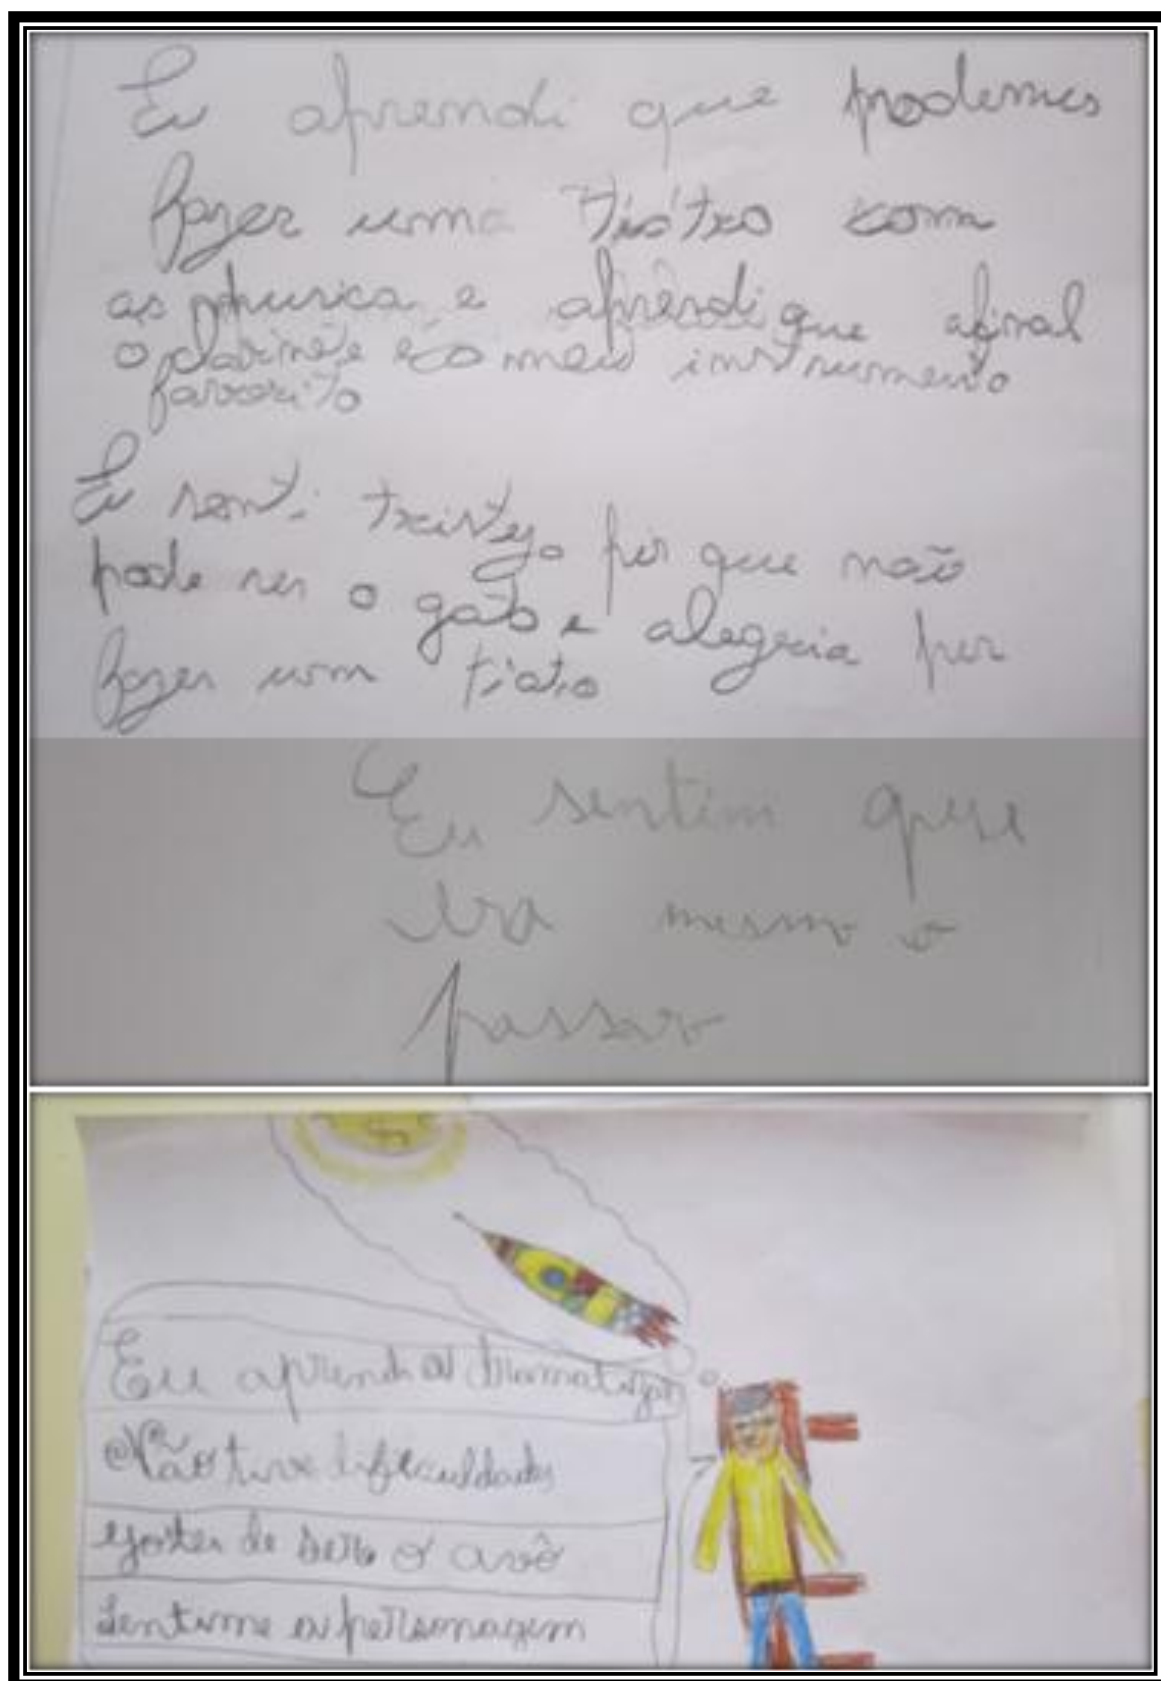 Eu aprendi que podemos
fazer uma tiatro com
as musica e aprendi que afinal
o clarinete é o meu instrumento
favorito
Eu senti tristeza por que não
pode ser o gato e alegria por
fazer um tiatro
Eu sentim que
era mesmo o
passaro
Eu aprendi a dramatizar
Não tive dificuldades
gostei de ser o avô
Sentime a personagem